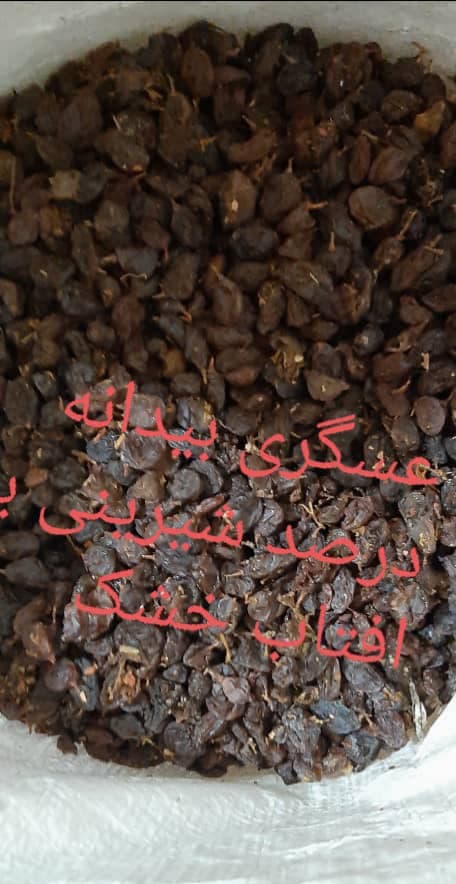 عسگری بیدانه
درصد شیرینی
افتاب خشک